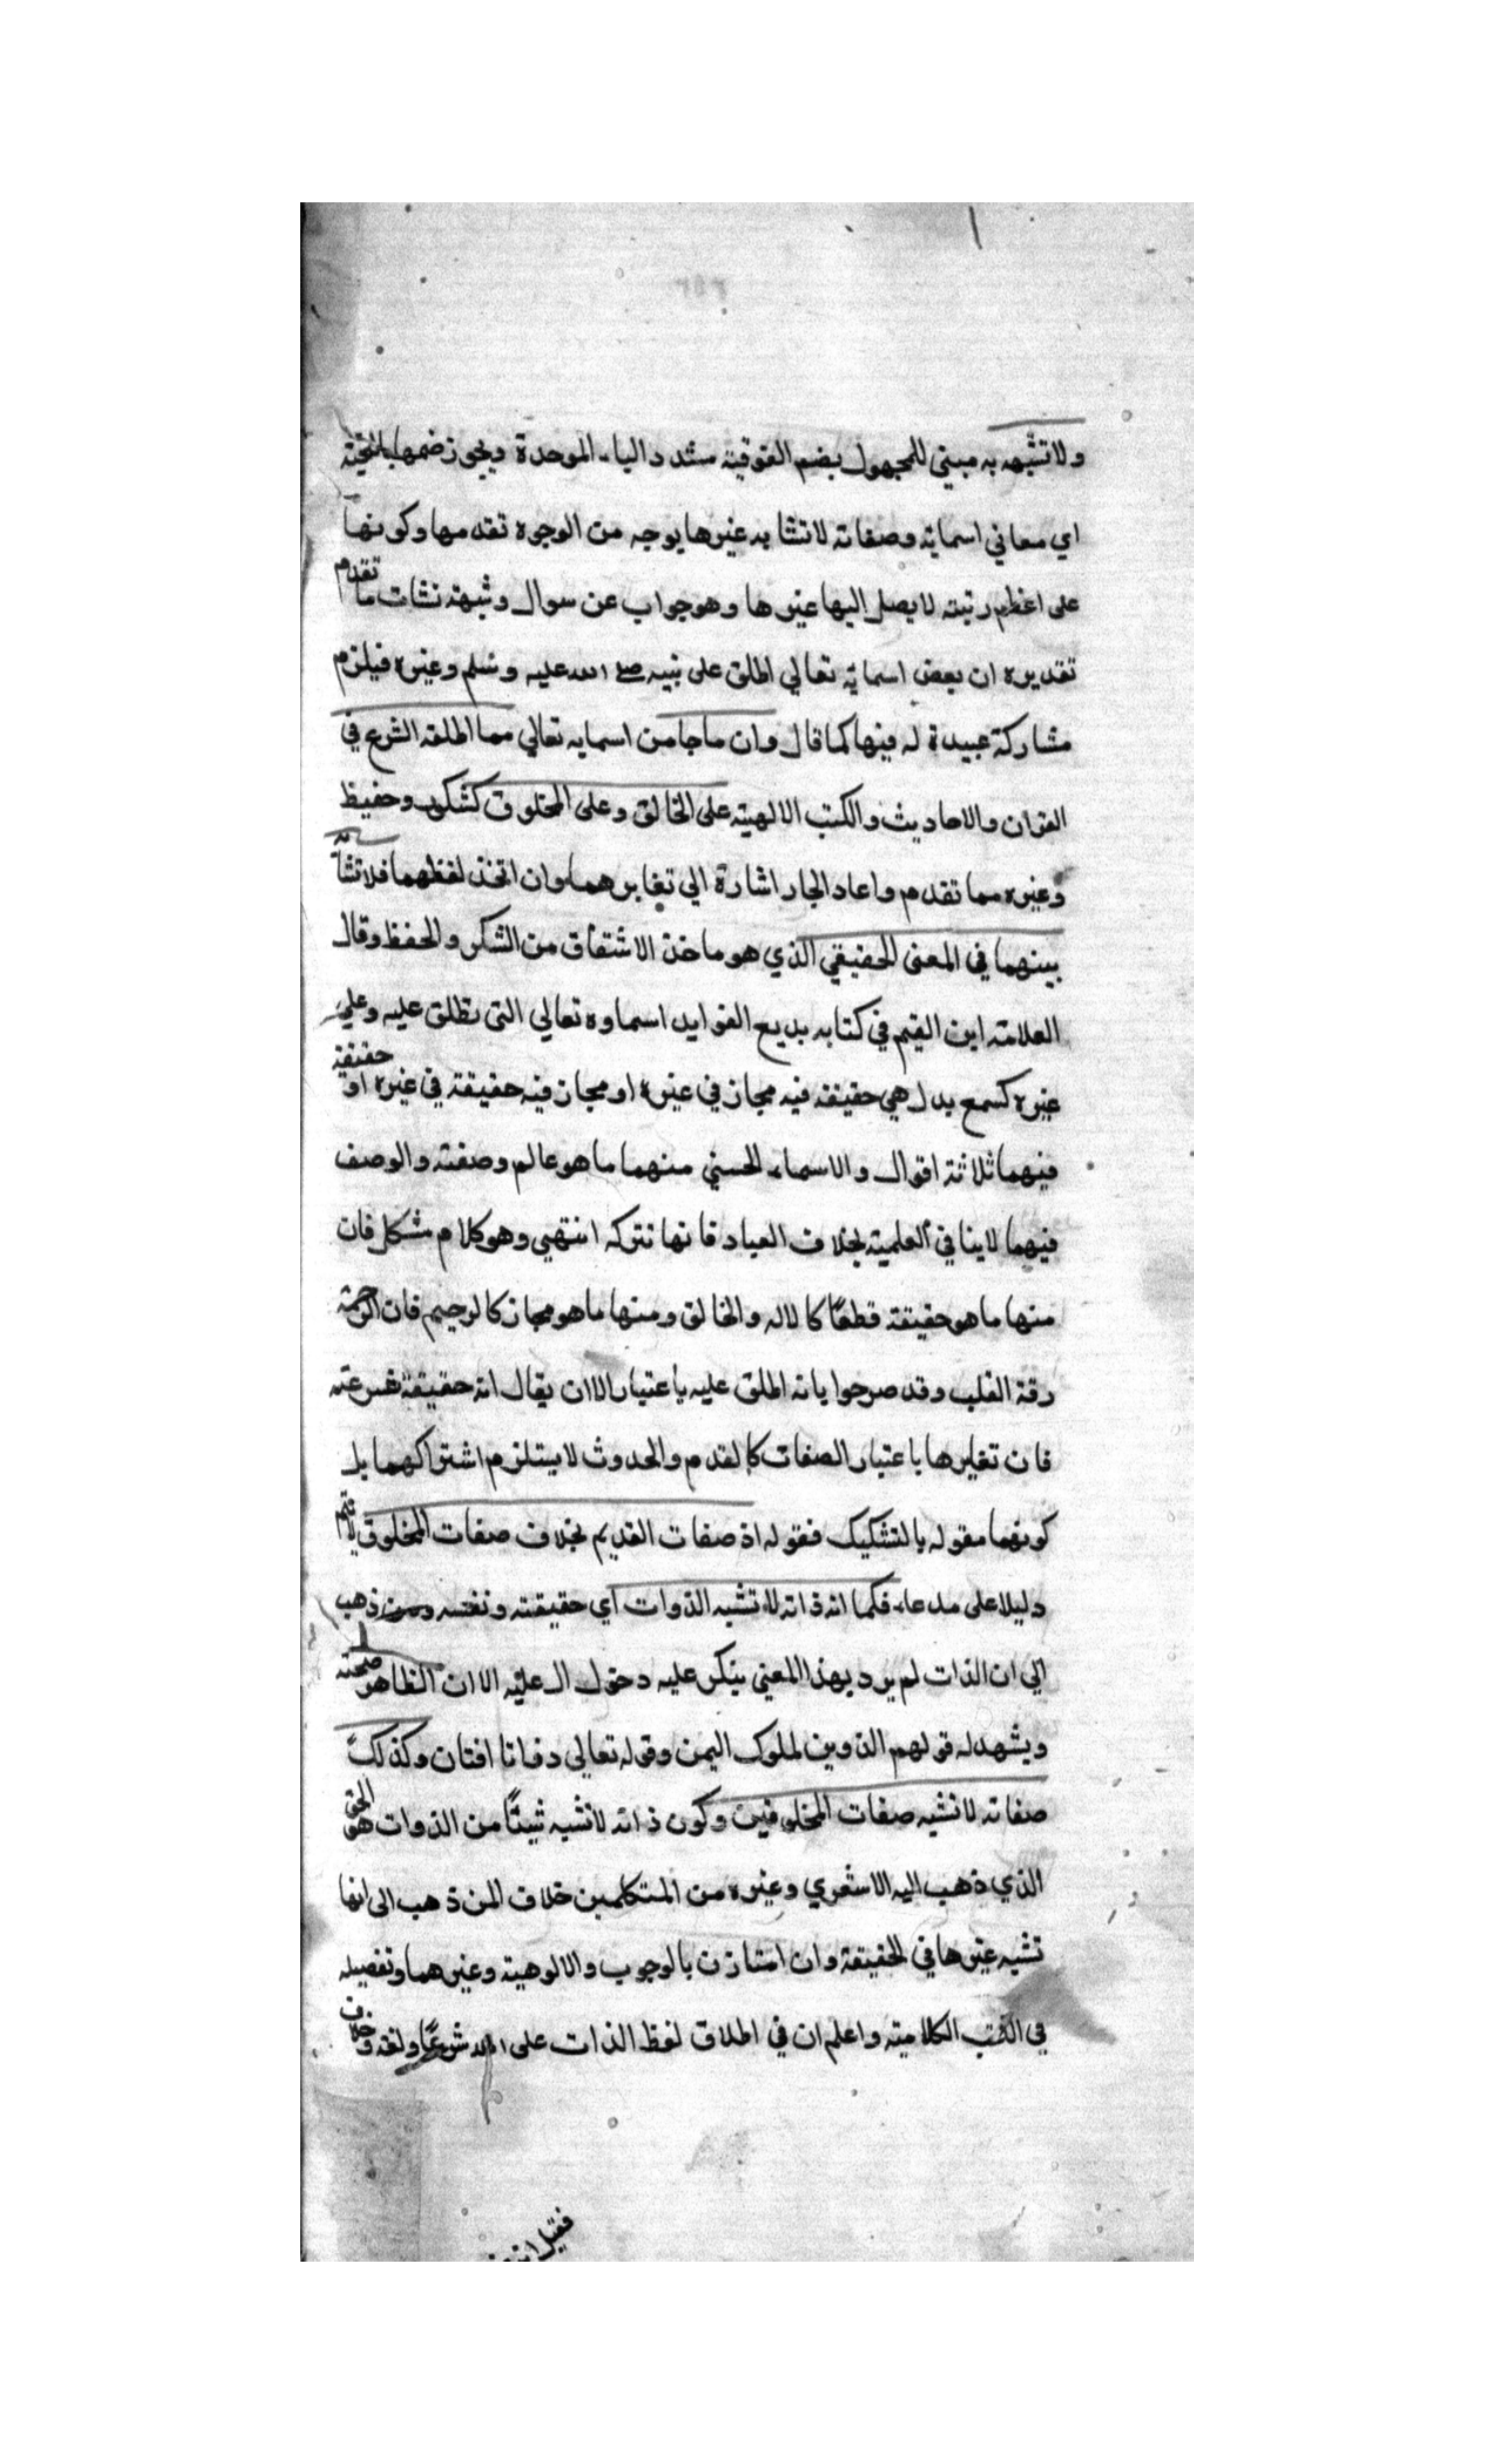 ولا تشبه به مبني للمجهول بضم الفوقية مشدد الباء الموحدة ويجوز ضمها بالتحتية
اي معاني اسمائه وصفاته لا تشابه غيرها بوجه من الوجوه تقدمها وكونها
على اعظم رتبته لا يصل اليها غيرها وهو جواب عن سوال وشبهة نشات ما تقدم
تقديره ان بعض اسمائه تعالي اطلق على نبيه صلى الله عليه وسلم وغيره فيلزم
مشاركة عبيدة له فيها كما قال وان ما جا من اسمايه تعالي مما اطلقه الشرع في
القران والاحاديث والكتب الالهية على الخالق وعلى المخلوق كشكور وحفيظ
وغيره مما تقدم واعاد الجار اشارة الي تغايرهما وان اتخذ لفظهما فلا تشابه
بينهما في المعنى الحقيقي الذي هو ماخذ الاشتقاق من الشكر والحفظ وقال
العلامة ابن القيم في كتابه بديع الفوايد اسماوه تعالي التى تطلق عليه وعلي
غيره كسمع بدل هي حقيقة فيه مجاز في غيره او مجاز فيه حقيقة في غيره او حقيقة
فيهما ثلاثة اقوال والاسماء الحسني منهما ما هو عالم وصفته والوصف
فيهما لا ينافي العلمية بخلاف العباد فانها نتركه انتهي وهو كلام مشكل فان
منها ما هو حقيقة قطعًا كالاله والخالق ومنها ما هو مجاز كالرحيم فان الرحمة
رقة القلب وقد صرحوا بانه اطلق عليه باعتبار الا ان يقال انه حقيقة شرعته
فان تغايرها باعتبار الصفات كالقدم والحدوث لا يستلزم اشتراكهما بل
كونهما مقوله بالتشكيك فقوله اذ صفات القديم بخلاف صفات المخلوق لا يتم
دليلا على مدعاء فكما انه ذاته لا تشبه الذوات اي حقيقته ونفسه ومن ذهب
الي ان الذات لم يرد بهذا المعني ينكر عليه دخول ال عليه الا ان الظاهر صحته
ويشهد له قولهم الذوين لملوك اليمن وقوله تعالى ذواتا افنان وكذلك
صفاته لا تشبه صفات المخلوقين وكون ذاته لا تشبه شيئًا من الذوات هو الحق
الذي ذهب اليه الاشعري وغيره من المتكلمين خلاف المن ذهب الى انها
تشبه غيرها في الحقيقة وان امتازت بالوجوب والالوهية وغيرهما وتفصيله
في الكتب الكلامية واعلم ان في اطلاق لفظ الذات على الله شرعًا ولغه وخلاف